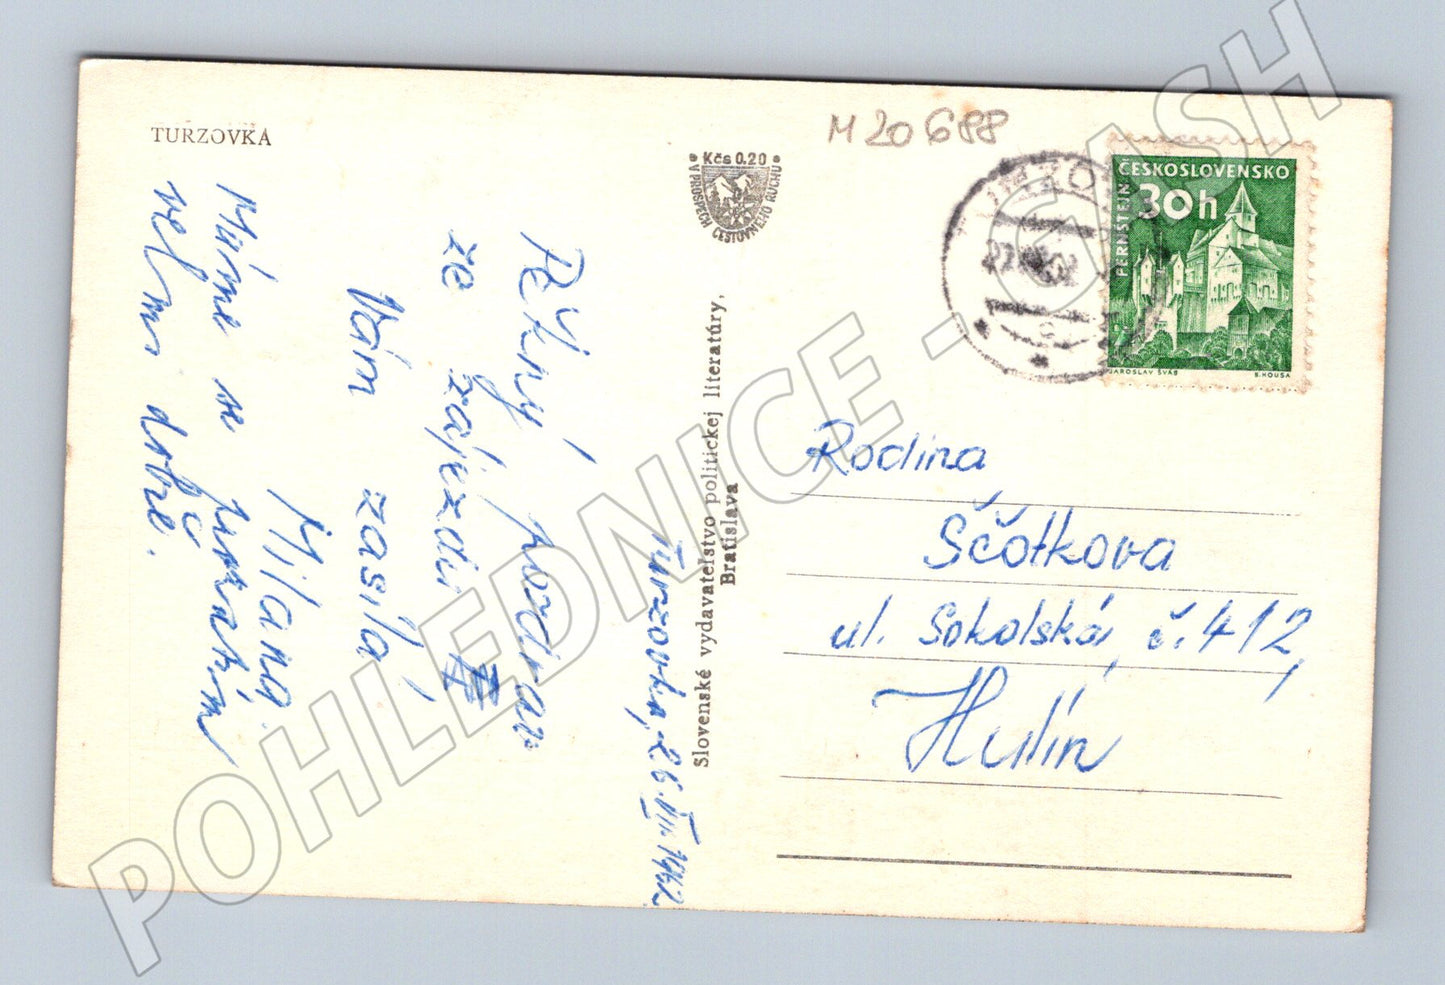 TURZOVKA
M20688
Kčs 0.20
V PROSPECH CESTOVNÉHO RUCHU
ČESKOSLOVENSKO
30h
PERNŠTEJN
JAROSLAV ŠVÁB
B. HOUSA
Turzovka, 26.VII.1962
Pěkný pozdrav
ze zájezdu
Vám zasílá
Milana.
Máme se
velmi dobře.
Slovenské vydavateľstvo politickej literatúry,
Bratislava
Rodina
Ščotkova
ul. Sokolská č. 412,
Hulín
POHLEDNICE - GASH